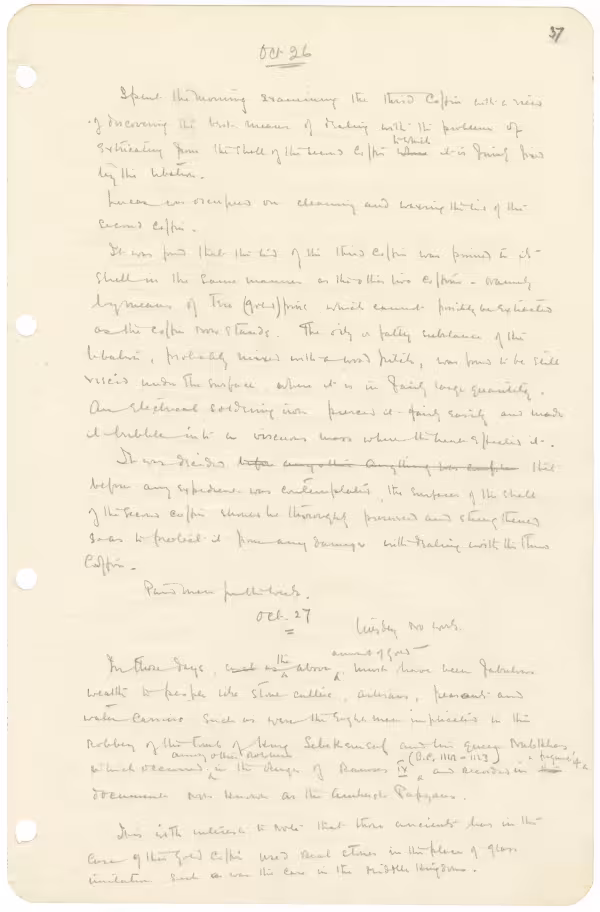 37
Oct. 26
Spent the morning examining the third coffin with a view
of discovering the best means of dealing with the problem of
extricating from the shell of the second coffin to which where it is firmly fixed
by the libation.
Lucas was occupied on cleaning and waxing the lid of the
second coffin.
It was found that the lid of the third coffin was pinned to its
shell in the same manner as the other two coffins - namely
by means of (gold) pins which cannot possibly be extracted
as the coffin now stands. The oily or fatty substance of the
libation, probably mixed with a wood pitch, was found to be still
viscid under the surface where it is in fairly large quantity.
An electrical soldering iron pierced it fairly easily and made
it bubble into a viscous mass where the heat affected it.
It was decided before any other anything was that
before any expedient was contemplated, the surfaces of the shell
of the second coffin should be thoroughly preserved and strengthened
so as to protect it from any damage with dealing with the third
coffin.
Paid men for the week.
Oct. 27
Tuesday no work
amount of gold
In those days, the above, must have been fabulous
wealth to people like stone cutters, artisans, peasants and
water carriers such as were the eight men implicated in the
robbery of the tomb of King Sebekemsaf and his Queen Nubkhas
among other robberies (B.C. 1142 - 1123)
which occurred in the reign of Rameses IX and recorded in
documents now known as the Amherst Papyrus.
It is with interest to note that these ancients has in the
case of this gold coffin used real stones in the place of glass
imitation such as was the case in the Middle Kingdom.